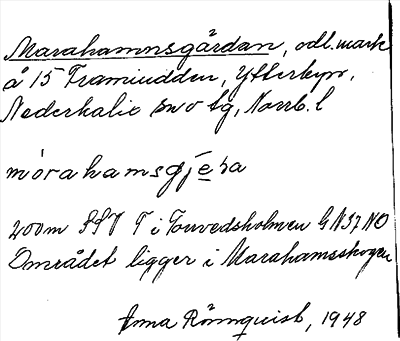 Marahamnsgärdan, odl.mark
å 15 Framiudden, Ytterbyn,
Nederkalix sn o tg, Norrb. l
mòrahamsgjēra
200m SSV T i Torvedsholmen GN37NO
Området ligger i Marahamsskogen
Anna Rönnquist, 1948